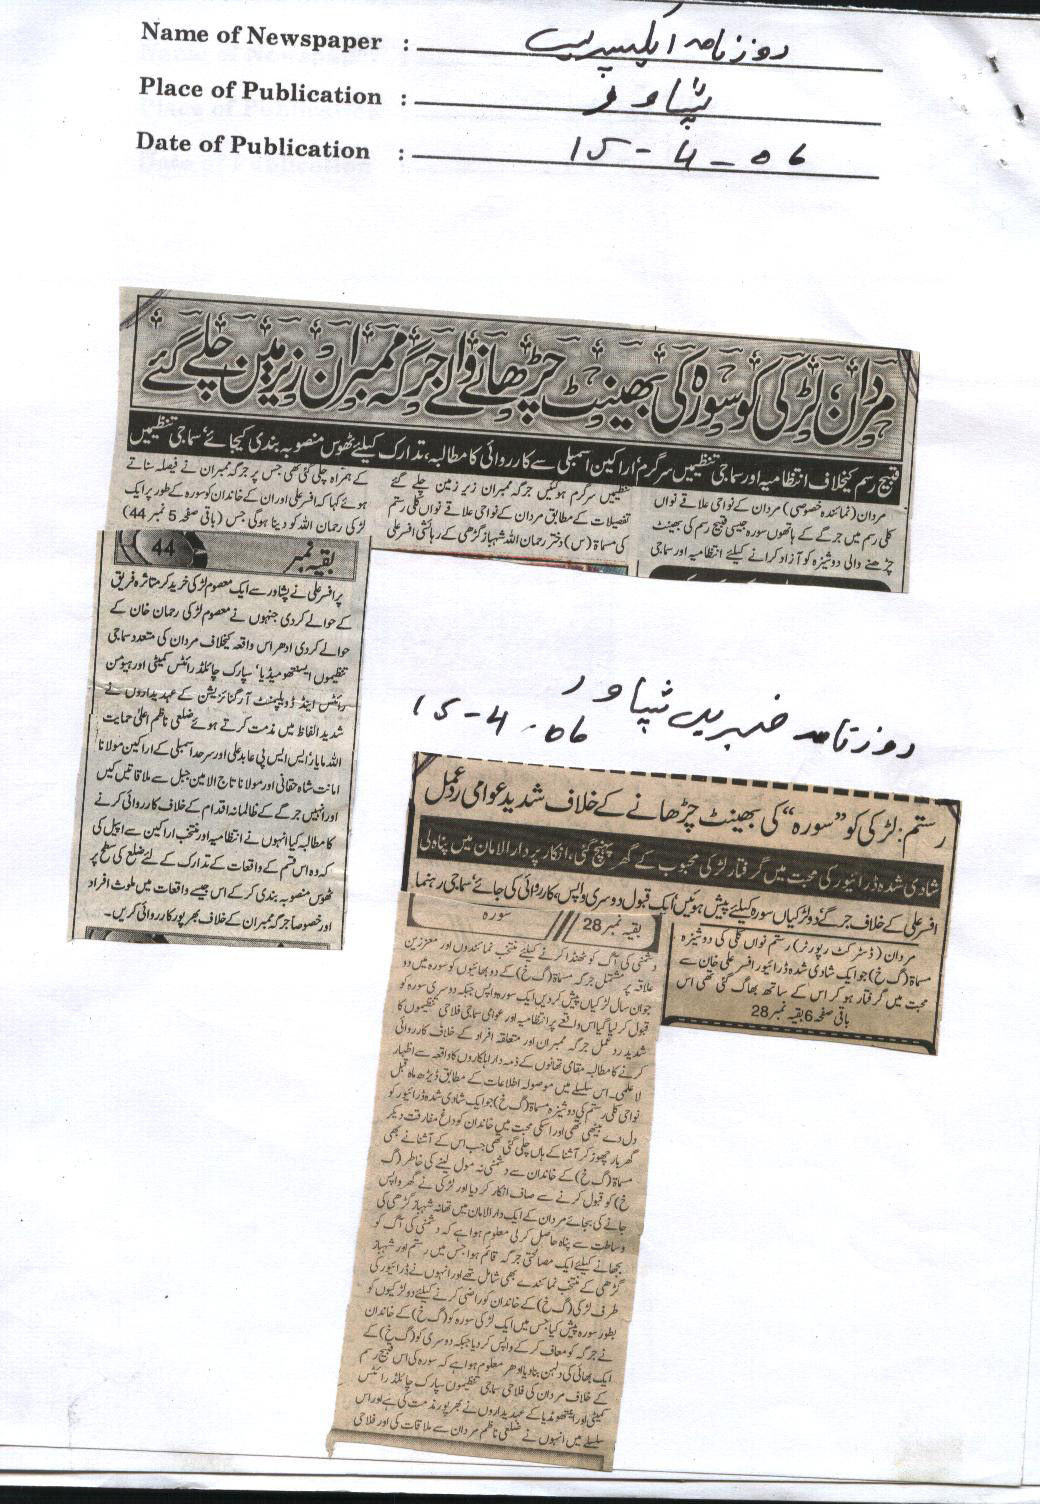 Name of Newspaper : روزنامہ ایکسپریس
Place of Publication : پشاور
Date of Publication : 15-4-06
مردان، لڑکی کو سورہ کی بھینٹ چڑھانے والے جرگہ ممبران زیر زمین چلے گئے
قبیح رسم کیخلاف انتظامیہ اور سماجی تنظیمیں سرگرم، اراکین اسمبلی سے کارروائی کا مطالبہ، تدارک کیلئے ٹھوس منصوبہ بندی کیجائے، سماجی تنظیمیں
مردان (نمائندہ خصوصی) مردان کے نواحی علاقے نواں
کلی رستم میں جرگے کے ہاتھوں سورہ جیسی قبیح رسم کی بھینٹ
چڑھنے والی دوشیزہ کو آزاد کرانے کیلئے انتظامیہ اور سماجی
تنظیمیں سرگرم ہوگئیں جرگہ ممبران زیر زمین چلے گئے
تفصیلات کے مطابق مردان کے نواحی علاقے نواں کلی رستم
کی مسماۃ (س) دختر رحمان اللہ شہباز گڑھی کے رہائشی افسر علی
کے ہمراہ چلی گئی تھی جس پر جرگہ ممبران نے فیصلہ سناتے
ہوئے کہا کہ افسر علی اور ان کے خاندان کو سورہ کے طور پر ایک
لڑکی رحمان اللہ کو دینا ہوگی جس (باقی صفحہ 5 نمبر 44)
بقیہ نمبر 44
پر افسر علی نے پشاور سے ایک معصوم لڑکی خرید کر متاثرہ فریق
کے حوالے کردی جنہوں نے معصوم لڑکی رحمان خان کے
حوالے کردی ادھر اس واقعہ کیخلاف مردان کی متعدد سماجی
تنظیموں ایستھو میڈیا، سپارک چائلڈ رائٹس کمیٹی اور ہیومن
رائٹس اینڈ ڈویلپمنٹ آرگنائزیشن کے عہدیداروں نے
شدید الفاظ میں مذمت کرتے ہوئے ضلعی ناظم اعلیٰ حمایت
اللہ مایار، ایس ایس پی عابد علی اور سرحد اسمبلی کے اراکین مولانا
امانت شاہ حقانی اور مولانا تاج الامین جبل سے ملاقاتیں کیں
اور انہیں جرگے کے ظالمانہ اقدام کے خلاف کارروائی کرنے
کا مطالبہ کیا انہوں نے انتظامیہ اور منتخب اراکین سے اپیل کی
کہ وہ اس قسم کے واقعات کے تدارک کے لئے ضلع کی سطح پر
ٹھوس منصوبہ بندی کرکے اس جیسے واقعات میں ملوث افراد
اور خصوصاً جرگہ ممبران کے خلاف بھرپور کارروائی کریں۔
روزنامہ خبریں پشاور
15-4-06
رستم: لڑکی کو "سورہ" کی بھینٹ چڑھانے کے خلاف شدید عوامی ردعمل
شادی شدہ ڈرائیور کی محبت میں گرفتار لڑکی محبوب کے گھر پہنچ گئی، انکار پر دارالامان میں پناہ لی
افسر علی کے خلاف جرگے، دو لڑکیاں سورہ کیلئے پیش ہوئیں، ایک قبول دوسری واپس، کارروائی کی جائے، سماجی رہنما
مردان (ڈسٹرکٹ رپورٹر) رستم نواں کلی کی دوشیزہ
مسماۃ (گ خ) جو ایک شادی شدہ ڈرائیور افسر علی خان سے
محبت میں گرفتار ہوکر اس کے ساتھ بھاگ گئی تھی اس
باقی صفحہ 6 بقیہ نمبر 28
بقیہ نمبر 28 سورہ
دشمنی کی آگ کو ٹھنڈا کرنے کیلئے منتخب نمائندوں اور معززین
علاقہ پر مشتمل جرگہ مسماۃ (گ خ) کے دو بھائیوں کو سورہ میں دو
جوان سال لڑکیاں پیش کردیں ایک سورہ واپس جبکہ دوسری سورہ کو
قبول کرلیا گیا اس واقعے پر انتظامیہ اور عوامی سماجی فلاحی تنظیموں کا
شدید ردعمل جرگہ ممبران اور متعلقہ افراد کے خلاف کارروائی
کرنے کا مطالبہ مقامی تھانوں کے ذمہ دار اہلکاروں کا واقعہ سے اظہار
لاعلمی۔ اس سلسلے میں موصولہ اطلاعات کے مطابق ڈیڑھ ماہ قبل
نواحی کلی رستم کی دوشیزہ مسماۃ (گ خ) جو ایک شادی شدہ ڈرائیور کو
دل دے بیٹھی تھی اور اسکی محبت میں خاندان کو داغ مفارقت دیکر
گھر بار چھوڑ کر آشنا کے ہاں چلی گئی تھی جب اس کے آشنا نے بھی
مسماۃ (گ خ) کے خاندان سے دشمنی نہ مول لینے کی خاطر (گ
خ) کو قبول کرنے سے صاف انکار کردیا اور لڑکی نے گھر واپس
جانے کی بجائے مردان کے ایک دارالامان میں تھانہ شہباز گڑھی کی
وساطت سے پناہ حاصل کرلی معلوم ہوا ہے کہ دشمنی کی آگ کو
بجھانے کیلئے ایک مصالحتی جرگہ قائم ہوا جس میں رستم اور شہباز
گڑھی کے منتخب نمائندے بھی شامل تھے اور انہوں نے ڈرائیور کی
طرف لڑکی (گ خ) کے خاندان کو راضی کرنے کیلئے دو لڑکیوں کو
بطور سورہ پیش کیا جس میں ایک لڑکی سورہ کو (گ خ) کے خاندان
نے جرگہ کو معاف کرکے واپس کردیا جبکہ دوسری کو (گ خ) کے
ایک بھائی کی دلہن بنا دیا ادھر معلوم ہوا ہے کہ سورہ کی اس قبیح رسم
کے خلاف مردان کی فلاحی سماجی تنظیموں سپارک چائلڈ رائٹس
کمیٹی اور ایتھو میڈیا کے عہدیداروں نے بھرپور مذمت کی ہے اور اس
سلسلے میں انہوں نے ضلعی ناظم مردان سے ملاقات کی اور فلاحی